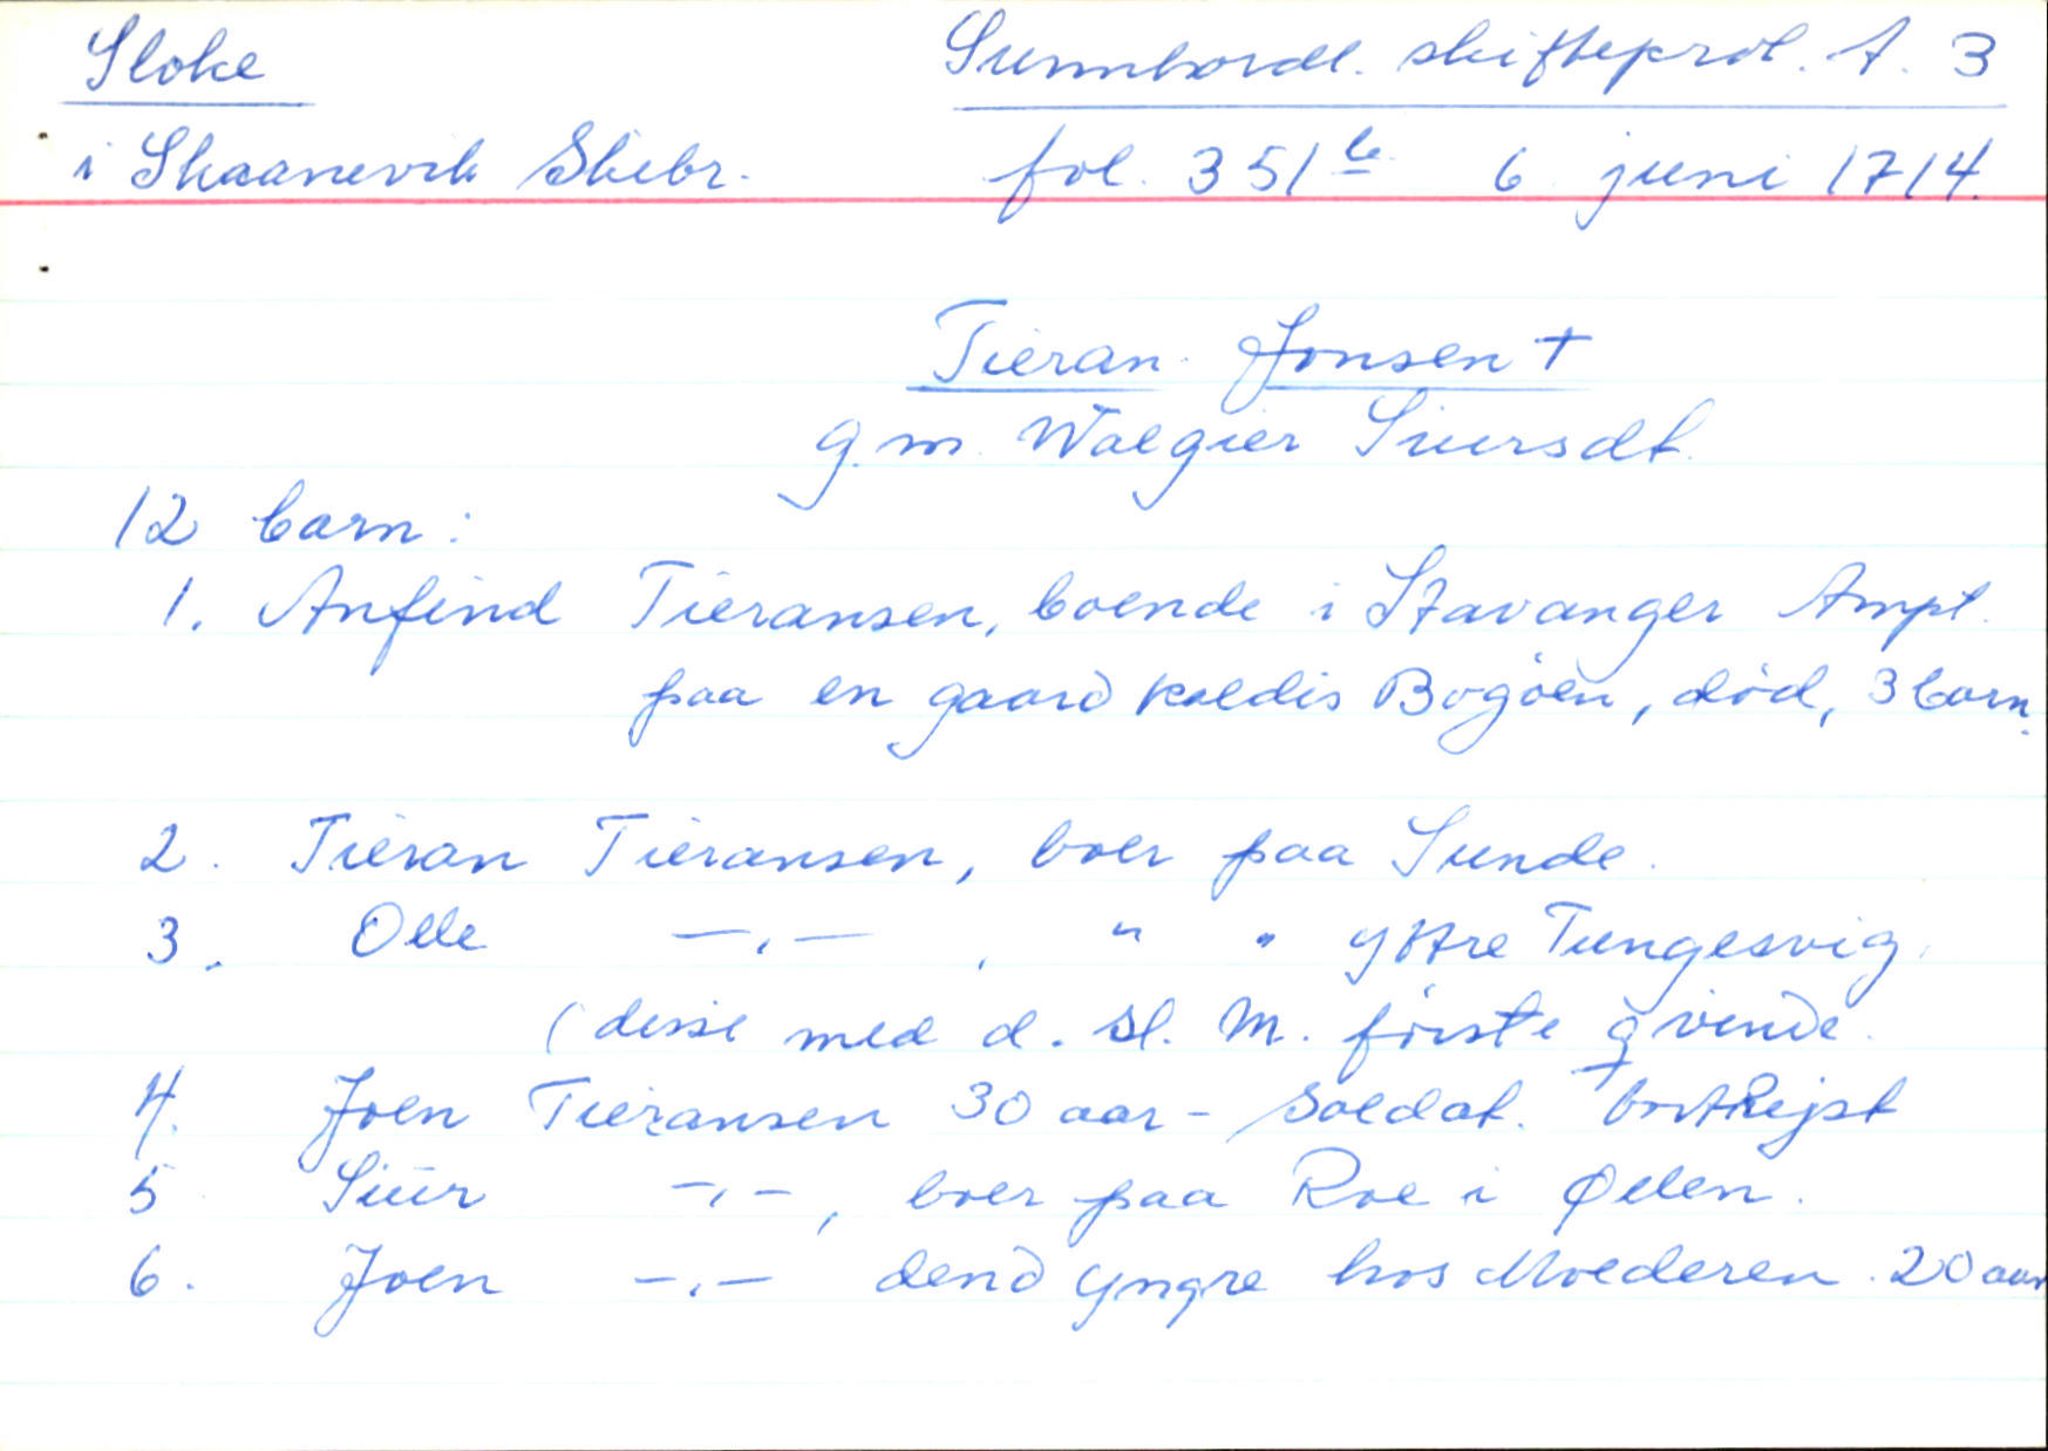 Sloke Sunnhordl. skifteprot. A. 3
i Skaanevik Skibr. fol. 351 b 6 juni 1714.
Tieran Jonsen +
g. m. Wålgier Siursdt.
12 barn:
1. Anfind Tieransen, boende i Stavanger Ampt.
paa en gaard kaldis Bogöen, död, 3 barn.
2. Tieran Tieransen, boer paa Sunde.
3. Olle —„— , " " yttre Tungesvig.
(disse med d. Sl. M. förste qvinde.
4. Joen Tieransen 30 aar - Soldat. bortRejst
5 Siur -„-, boer paa Roe i Ølen.
6. Joen -„- dend yngre hos Moederen. 20 aar